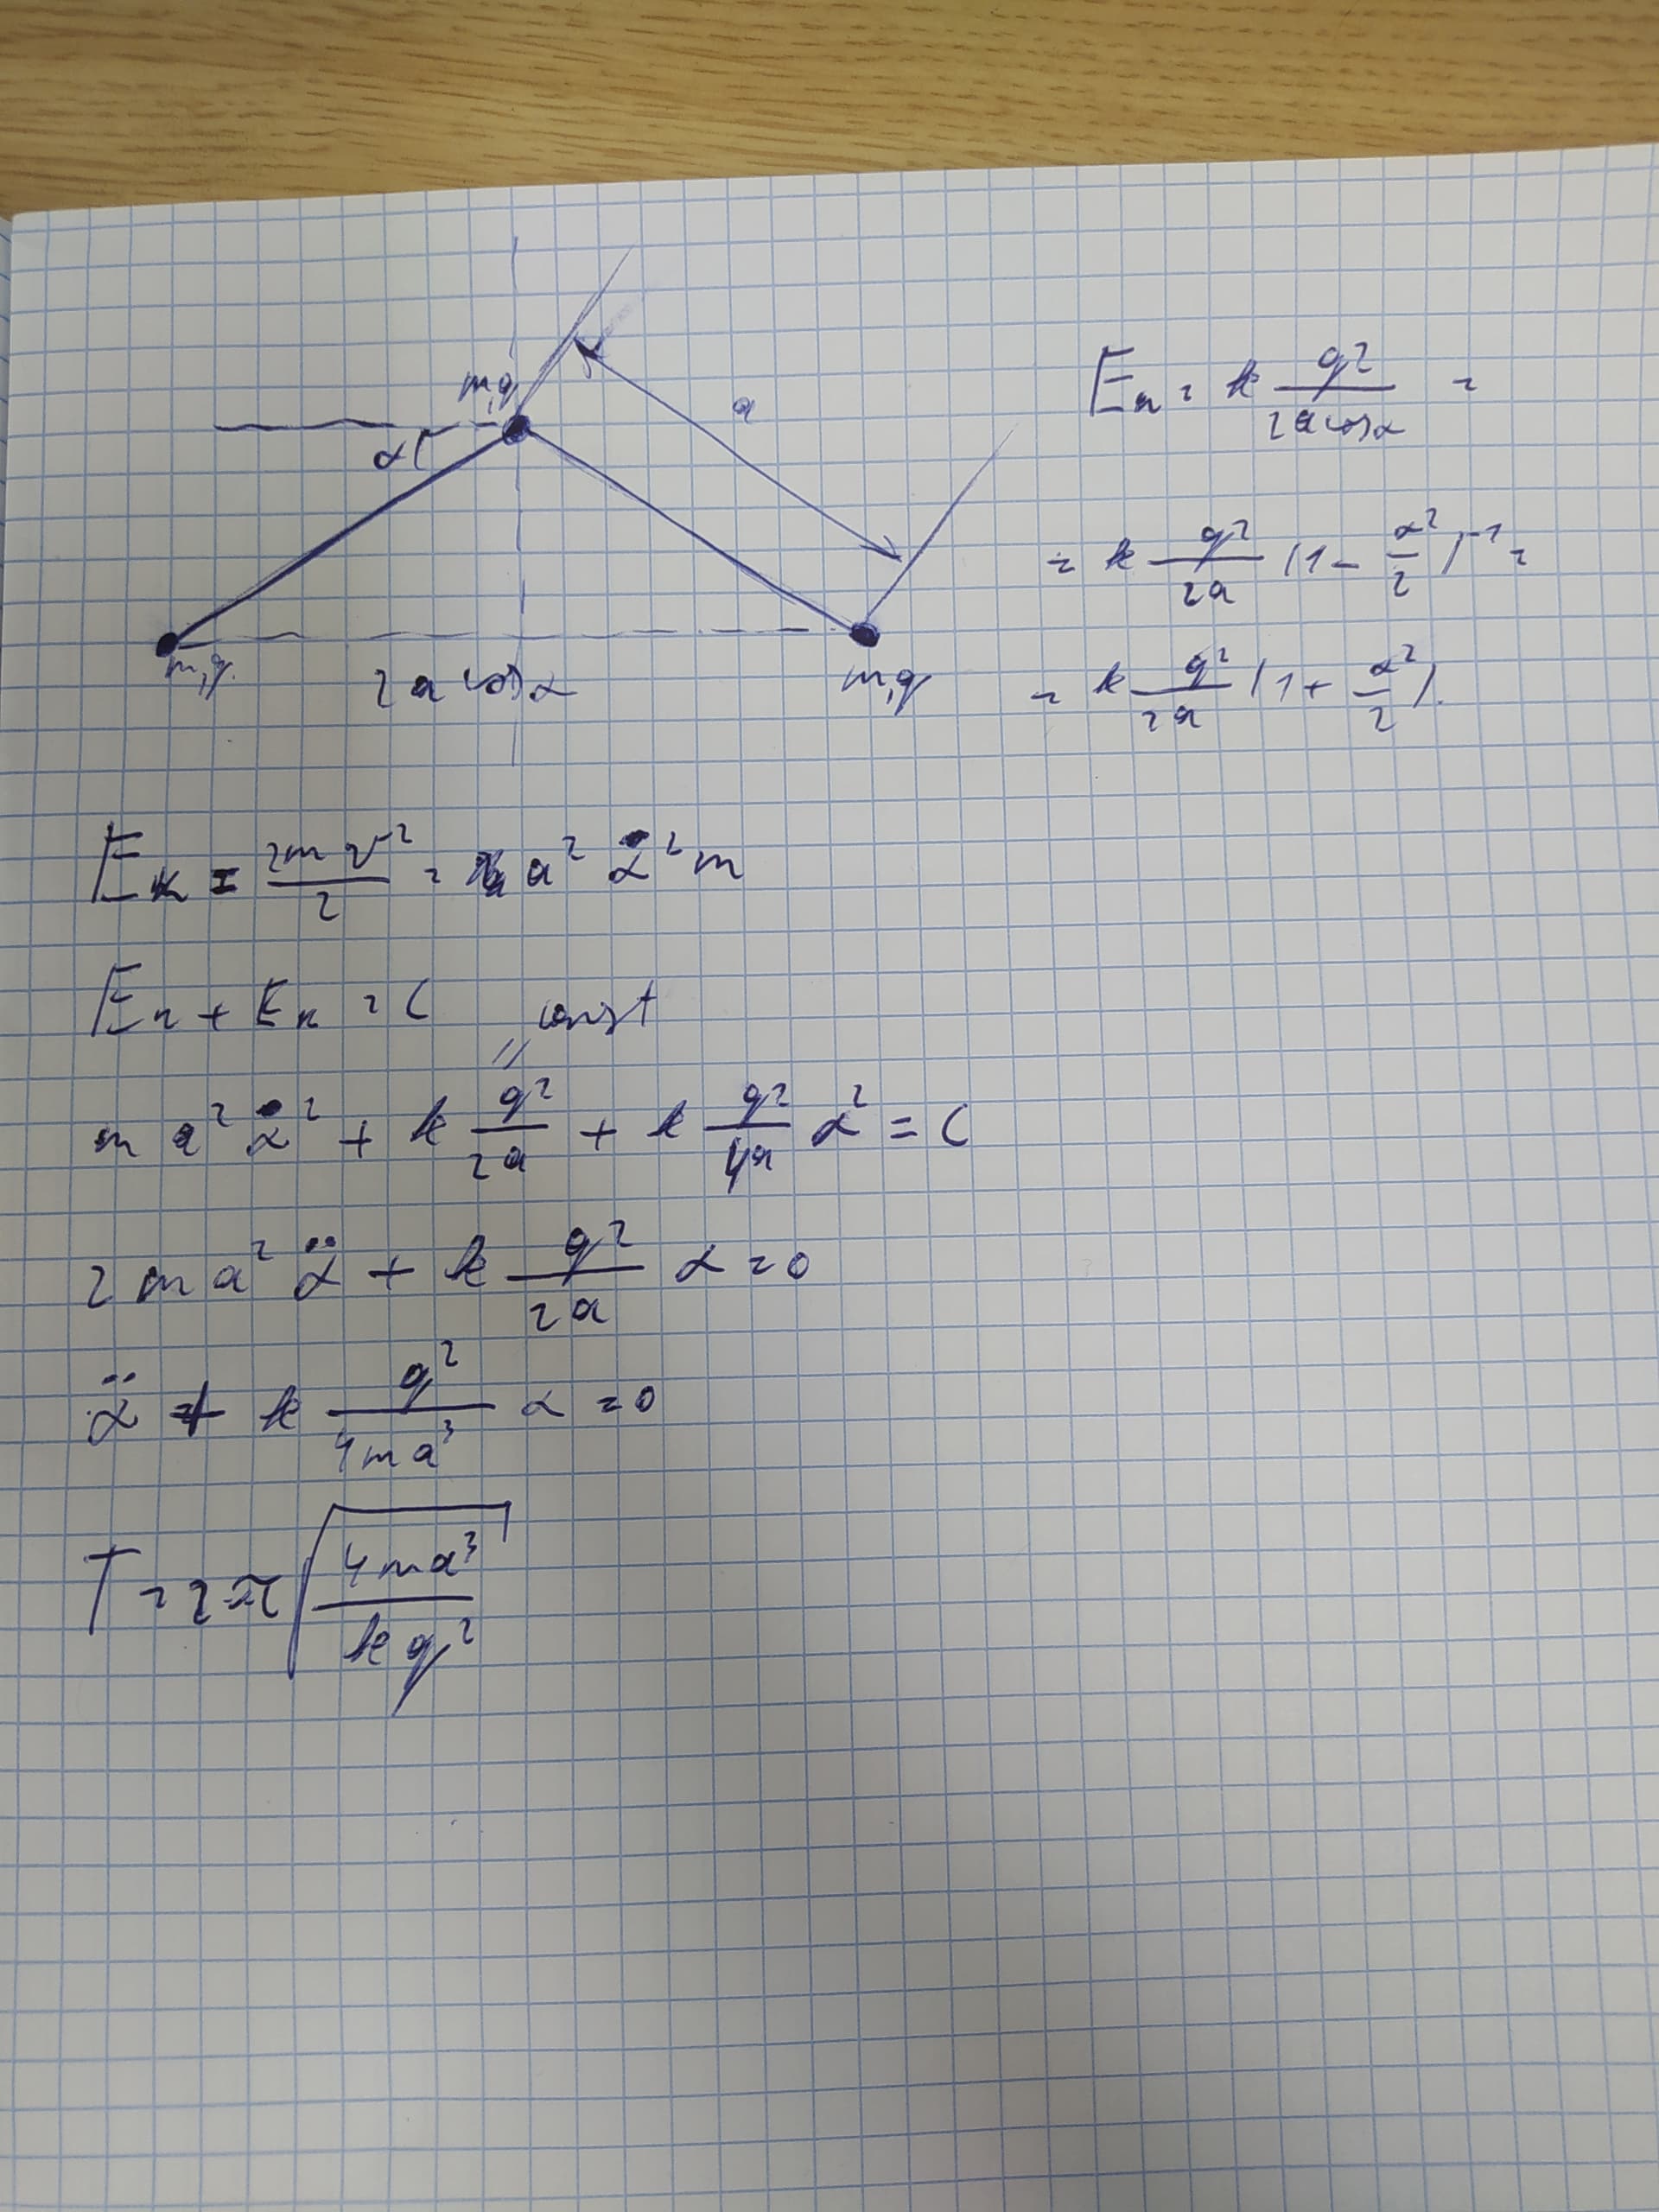 m,q
α
a
m,q
2a cosα
m,q
Eп = k q²/(2a cosα) =
= k q²/(2a) (1 - α²/2)⁻¹ =
= k q²/(2a) (1 + α²/2).
Eк = 2mv²/2 = a² α̇² m
Eп + Eк = C
const
m a² α̇² + k q²/(2a) + k q²/(4a) α² = C
2 m a² α̈ + k q²/(2a) α = 0
α̈ + k q²/(4ma³) α = 0
T = 2π √(4ma³/(kq²))